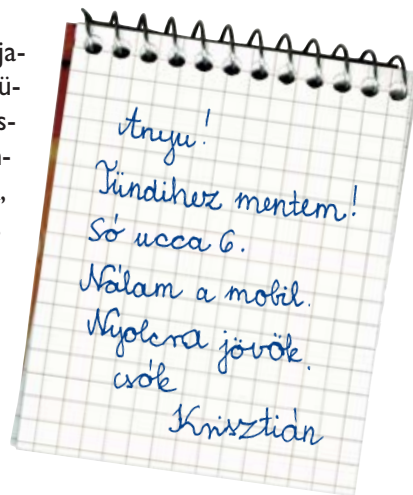 ja-
ü-
s-
-
,
Anyu!
Tündihez mentem!
Só ucca 6.
Nálam a mobil.
Nyolcra jövök.
csók
Krisztián